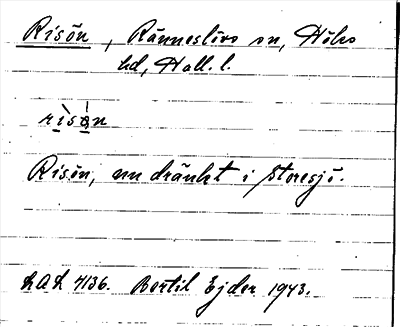 Risön, Ränneslövs sn, Höks
hd, Hall. l.
risøn
Risön, nu dränkt i Storesjö.
LAL 4136. Bertil Ejder 1943.